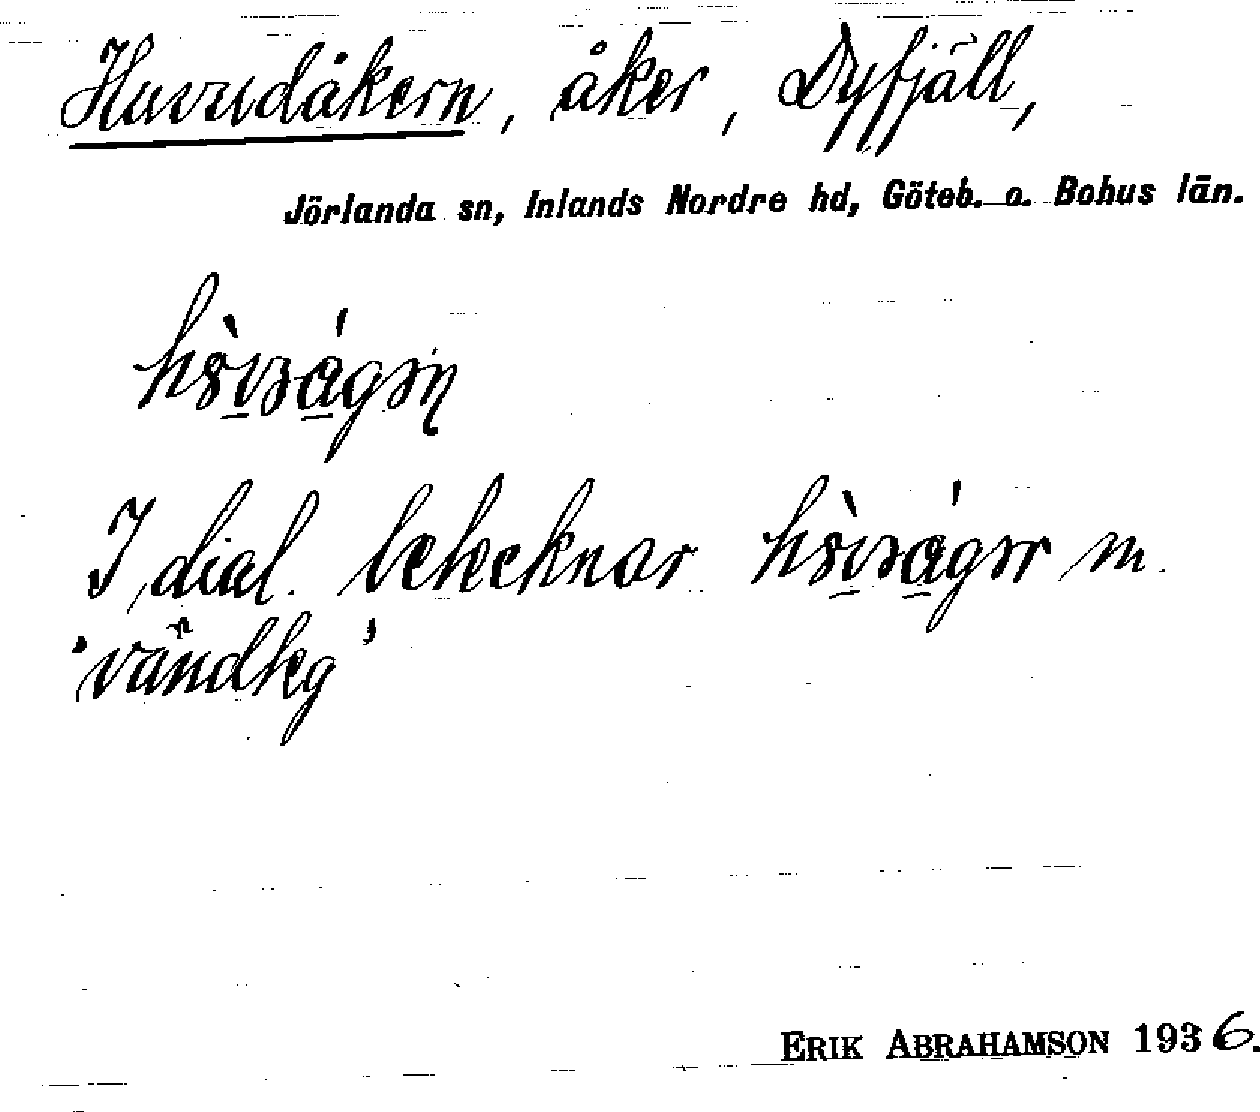 Huvudåkern, åker, Dyfjäll,
Jörlanda sn, Inlands Nordre hd, Göteb. o. Bohus län.
I dial. betecknar m.
'vändteg'
ERIK ABRAHAMSON 1936.